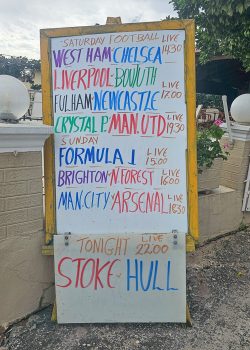 SATURDAY FOOTBALL
WEST HAM:CHELSEA LIVE 14.30
LIVERPOOL:BO'MUTH LIVE
FULHAM:NEWCASTLE LIVE 17.00
CRYSTAL P:MAN.UTD LIVE 19.30
SUNDAY
FORMULA 1 LIVE 15.00
BRIGHTON:N FOREST LIVE 16.00
MAN.CITY:ARSENAL LIVE 18.30
TONIGHT LIVE 22.00
STOKE: HULL